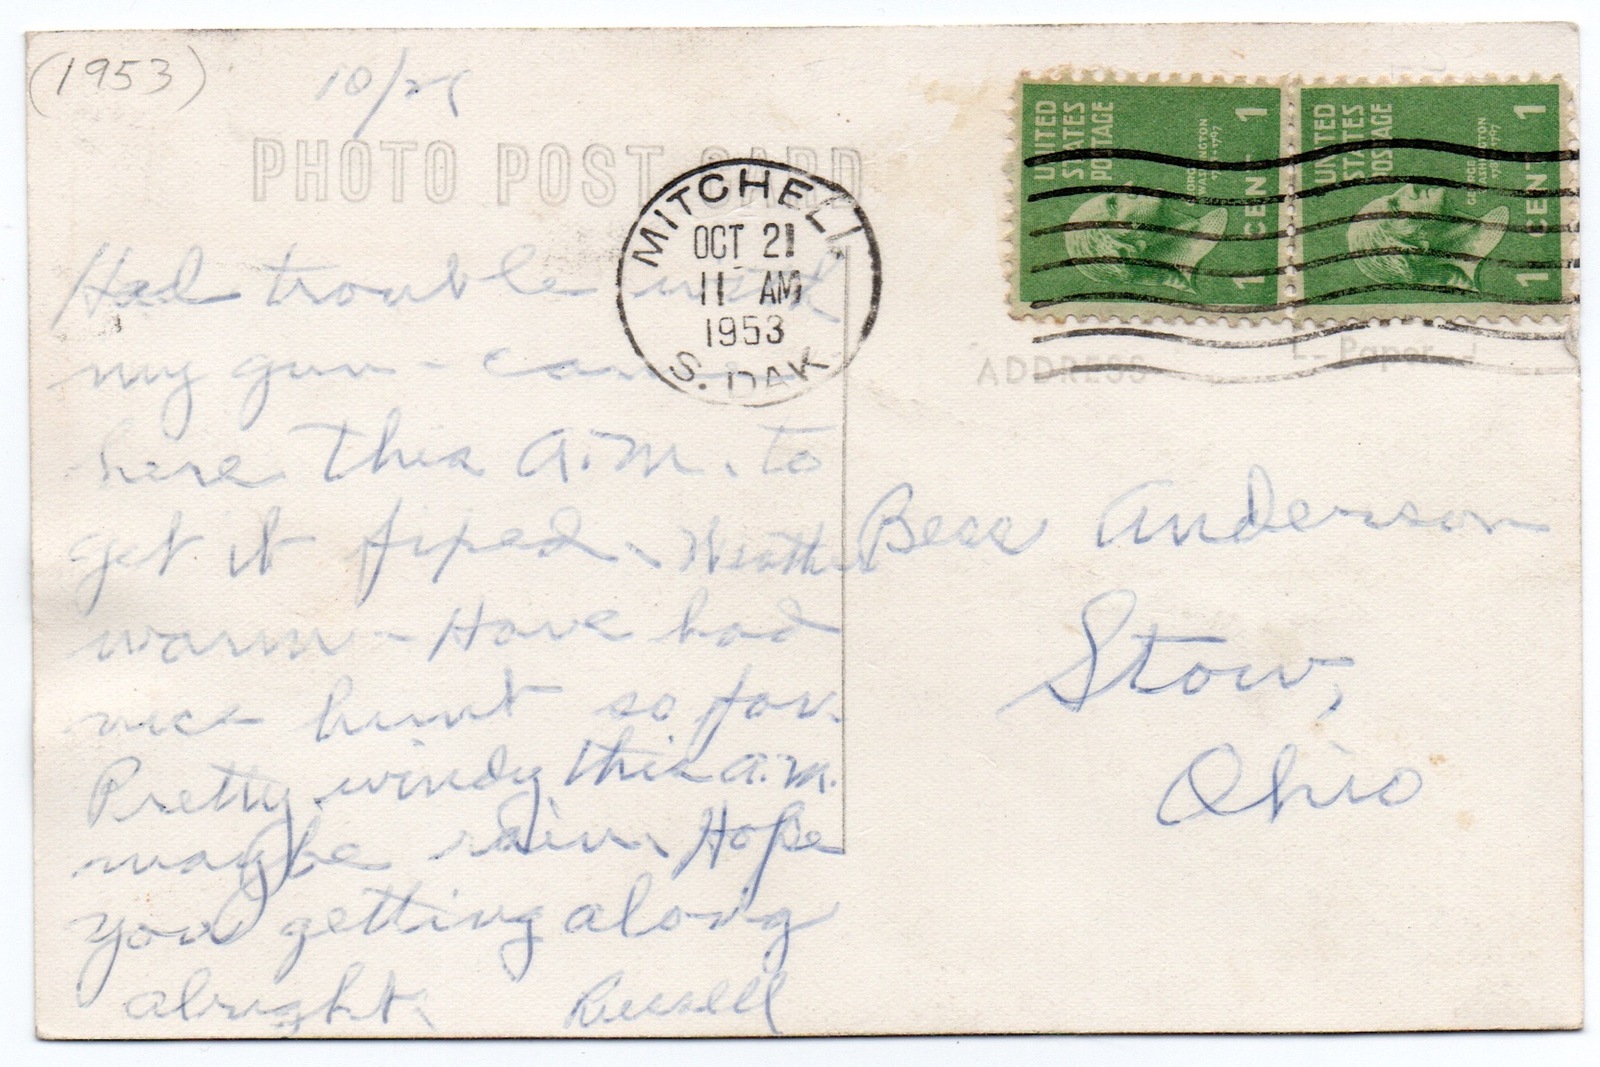 (1953)
PHOTO POST CARD
MITCHELL
OCT 21
11 AM
1953
S. DAK
UNITED
STATES
POSTAGE
GEORGE
WASHINGTON
1 CENT 1
UNITED
STATES
POSTAGE
GEORGE
WASHINGTON
1 CENT 1
ADDRESS
Paper
Had trouble with
my gun - came
here this A.M. to
get it fixed. Weather
warm - Have had
nice hunt so far.
Pretty windy this a.m.
maybe rain. Hope
you getting along
alright. Russell
Bess Anderson
Stow,
Ohio